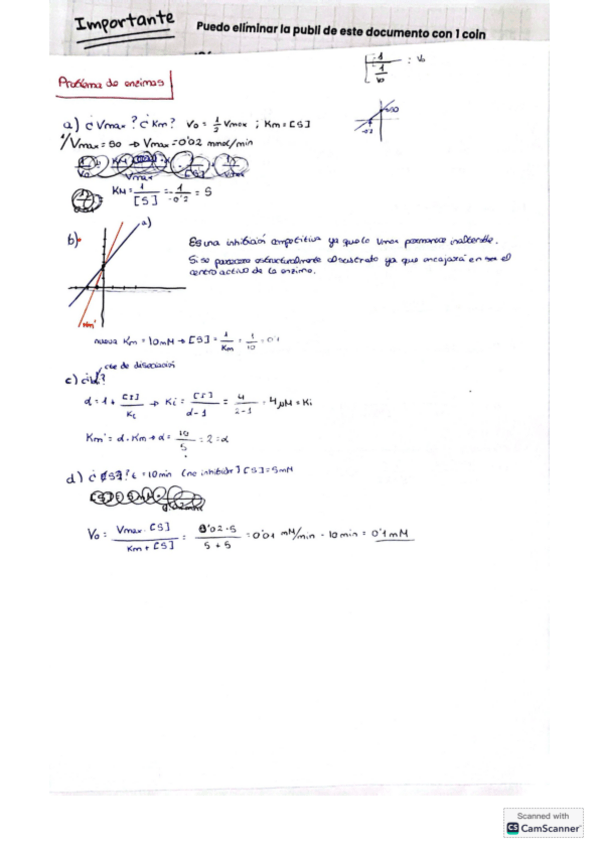 Importante
Puedo eliminar la publi de este documento con 1 coin
Problema de enzimas
a) ¿Vmax? ¿Km? Vo = 1/2 Vmax ; Km = [S]
1/Vmax = 50 → Vmax = 0'02 mmol/min
KM = 1/[S] = -1/-0'2 = 5
b)
a)
Es una inhibición competitiva ya que la Vmax permanece inalterable.
Si se parecera estructuralmente al sustrato ya que encajará en el
centro activo de la enzima.
Km'
nueva Km = 10mM → [S] = 1/Km = 1/10 = 0'1
cte de disociación
c) ¿id?
α = 1 + [I]/Ki → Ki = [I]/α-1 = 4/2-1 = 4 μM = Ki
Km' = α · Km → α = 10/5 = 2 = α
d) ¿[S]? t = 10min (no inhibidor) [S] = 5mM
Vo = Vmax · [S]/Km + [S] = 0'02 · 5/5 + 5 = 0'01 mM/min · 10min = 0'1mM
Scanned with
CS CamScanner